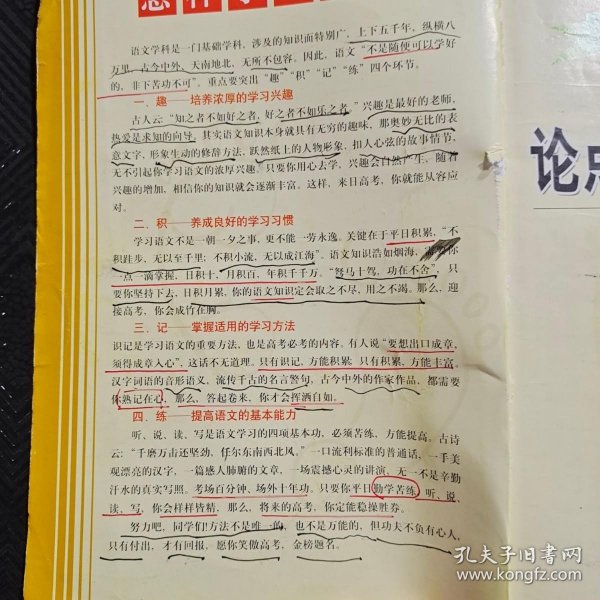 语文学科是一门基础学科，涉及的知识面特别广，上下五千年，纵横八
万里，古今中外、天南地北，无所不包容。因此，语文“不是随便可以学好
的，非下苦功不可”。重点要突出“趣”“积”“记”“练”四个环节。
一、趣——培养浓厚的学习兴趣
古人云：“知之者不如好之者，好之者不如乐之者。”兴趣是最好的老师，
热爱是求知的向导，其实语文知识本身就具有无穷的趣味，那奥妙无比的表
意文字，形象生动的修辞方法，跃然纸上的人物形象，扣人心弦的故事情节，
无不引起你学习语文的浓厚兴趣。只要你用心去学，兴趣会自然产生，随着
兴趣的增加，相信你的知识就会逐渐丰富。这样，来日高考，你就能从容应
对。
二、积——养成良好的学习习惯
学习语文不是一朝一夕之事，更不能一劳永逸。关键在于平日积累，“不
积跬步，无以至千里；不积小流，无以成江海”。语文知识浩如烟海，
一点一滴掌握，日积十，月积百，年积千千万。“驽马十驾，功在不舍”，只
要你坚持下去，日积月累，你的语文知识定会取之不尽，用之不竭。那么，迎
接高考，你会成竹在胸。
三、记——掌握适用的学习方法
识记是学习语文的重要方法，也是高考必考的内容。有人说“要想出口成章，
须得成章入心”，这话不无道理。只有识记，方能积累；只有积累，方能丰富。
汉字词语的音形语义，流传千古的名言警句，古今中外的作家作品，都需要
你熟记在心，那么，答起卷来，你才会挥洒自如。
四、练——提高语文的基本能力
听、说、读、写是语文学习的四项基本功，必须苦练，方能提高。古诗
云：“千磨万击还坚劲，任尔东南西北风。”一口流利标准的普通话，一手美
观漂亮的汉字，一篇感人肺腑的文章，一场震撼心灵的讲演，无一不是辛勤
汗水的真实写照。考场百分钟、场外十年功。只要你平日勤学苦练，听、说、
读、写，你会样样皆精，那么，将来的高考，你定能稳操胜券。
努力吧，同学们！方法不是唯一的，也不是万能的，但功夫不负有心人，
只有付出，才有回报，愿你笑傲高考，金榜题名。
论点
孔夫子旧书网
www.kongfz.com